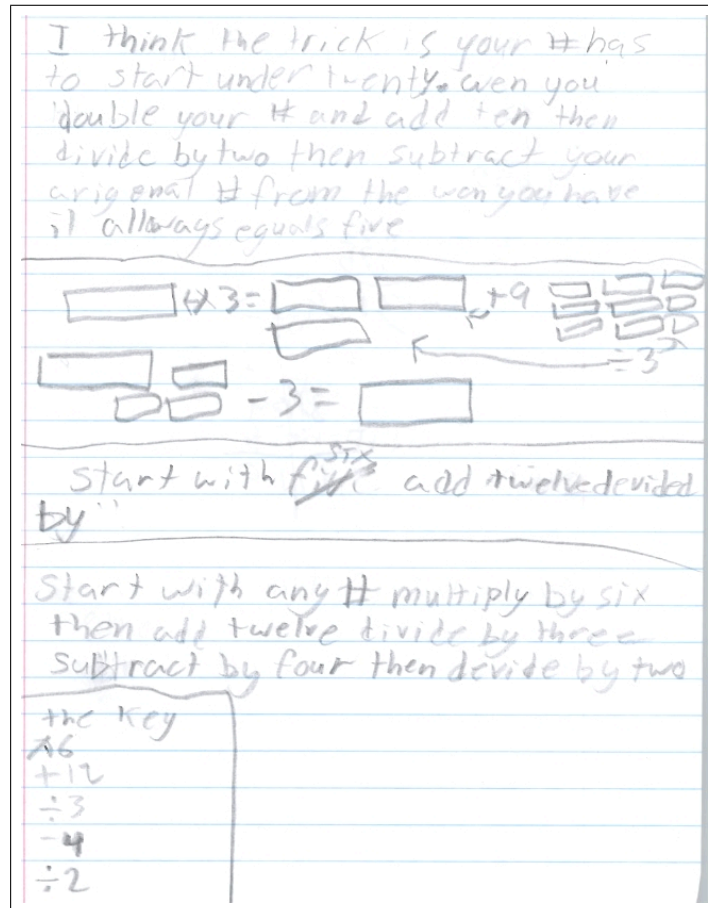 I think the trick is your # has
to start under twenty. wen you
double your # and add ten then
divide by two then subtract your
arigenal # from the won you have
it allways equals five
x 3 =
+9
÷3
- 3 =
six
start with five add twelve devided
by
start with any # multiply by six
then add twelve divide by three
subtract by four then devide by two
the key
x6
+12
÷3
-4
÷2